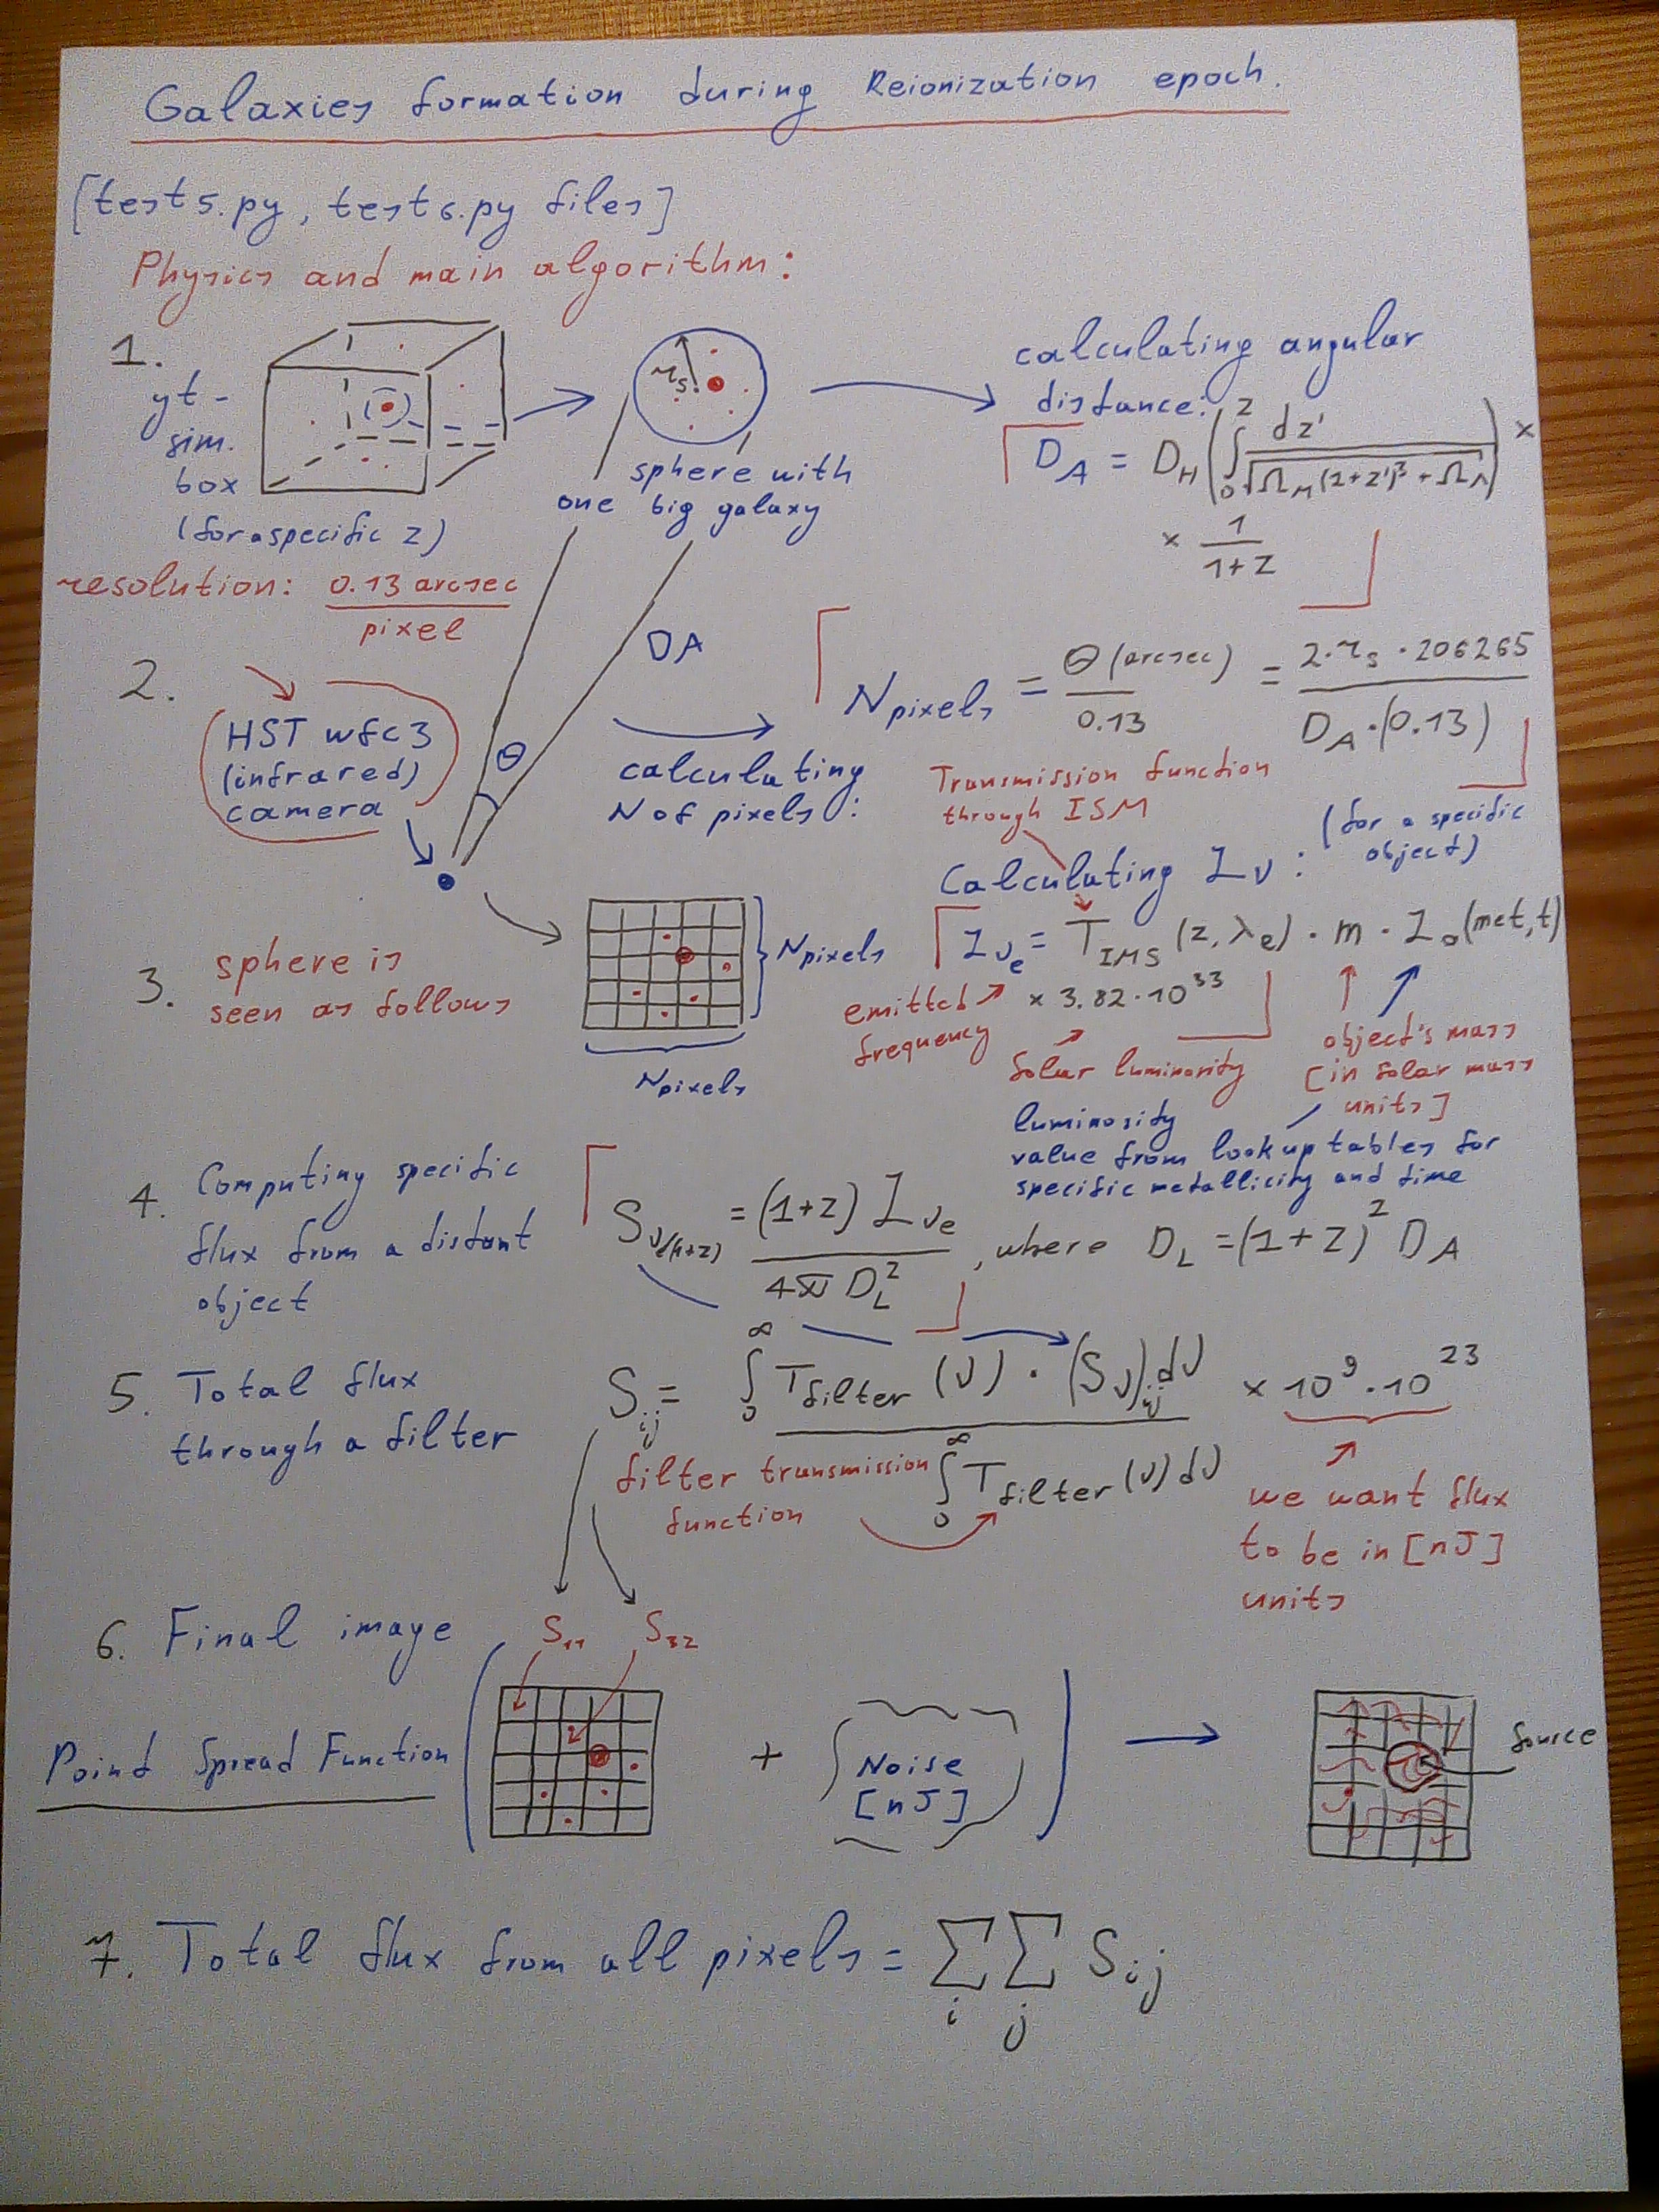 Galaxies formation during Reionization epoch.
[test5.py, test6.py files]
Physics and main algorithm:
1.
yt -
sim.
box
(for a specific z)
r_s
sphere with
one big galaxy
calculating angular
distance:
D_A = D_H (∫_0^z dz' / √(Ω_M (1+z')^3 + Ω_Λ)) ×
× 1/(1+z)
resolution: 0.13 arcsec / pixel
2.
HST wfc3
(infrared)
camera
θ
DA
calculating
N of pixels:
N pixels = θ (arcsec) / 0.13 = 2·r_s · 206265 / D_A · (0.13)
3. sphere is
seen as follows
N pixels
N pixels
Transmission function
through ISM
Calculating L_ν : (for a specific
object)
L_νe = T_IMS (z, λ_e) · m · L_o (met, t)
× 3.82 · 10^33
emitted
frequency
Solar luminosity
object's mass
[in Solar mass
units]
luminosity
value from lookup tables for
specific metallicity and time
4. Computing specific
flux from a distant
object
S_ν/(1+z) = (1+z) L_νe / 4π D_L^2 , where D_L = (1+z)^2 D_A
5. Total flux
through a filter
S_ij = ∫_0^∞ T_filter (ν) · (S_ν)_ij dν / ∫_0^∞ T_filter (ν) dν × 10^9 · 10^23
filter transmission
function
we want flux
to be in [nJ]
units
6. Final image
S_11 S_32
Point Spread Function
+
Noise
[nJ]
Source
7. Total flux from all pixels = Σ_i Σ_j S_ij